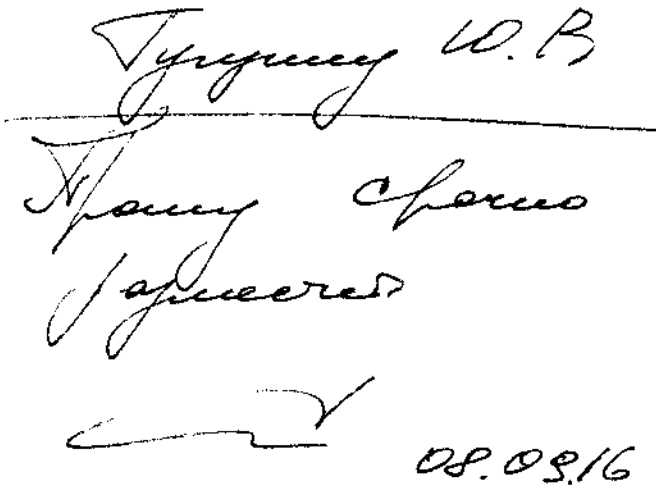 Тугушину Ю.В
Прошу срочно
разместить
08.09.16